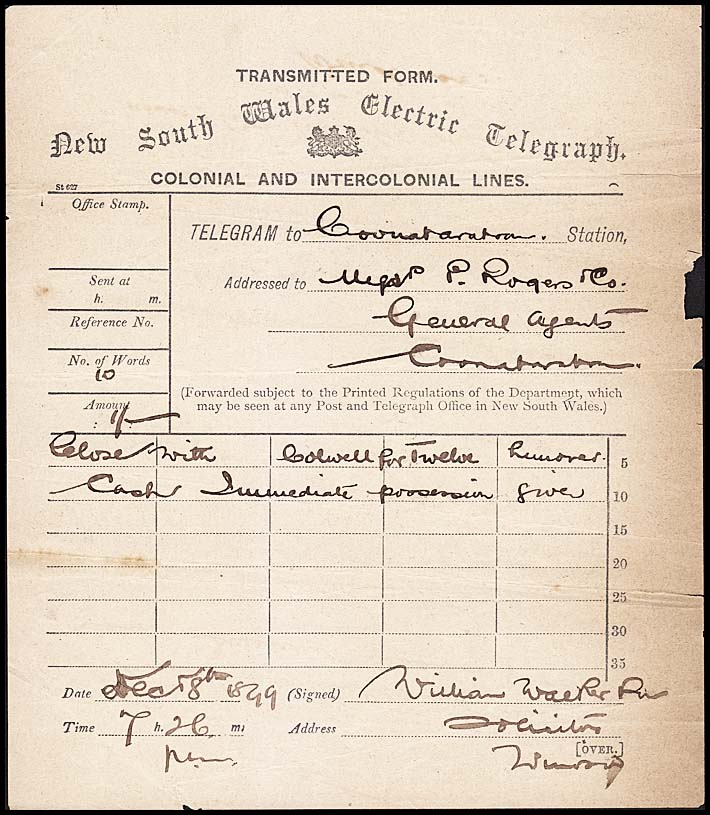 TRANSMITTED FORM.
New South Wales Electric Telegraph.
COLONIAL AND INTERCOLONIAL LINES.
St 627
Office Stamp.
TELEGRAM to Coonabarabran. Station,
Sent at
h. m.
Addressed to P. Rogers & Co.
General Agents
Coonabarabran.
Reference No.
No. of Words
10
Amount
: 1/-
(Forwarded subject to the Printed Regulations of the Department, which
may be seen at any Post and Telegraph Office in New South Wales.)
Close with Colwell for Twelve 5
Cash Immediate possession given 10
15
20
25
30
35
Date Dec 18th 1899 (Signed) William Walker
Time 7 h. 26 m. Address Solicitor
pm. Windsor
[OVER.]